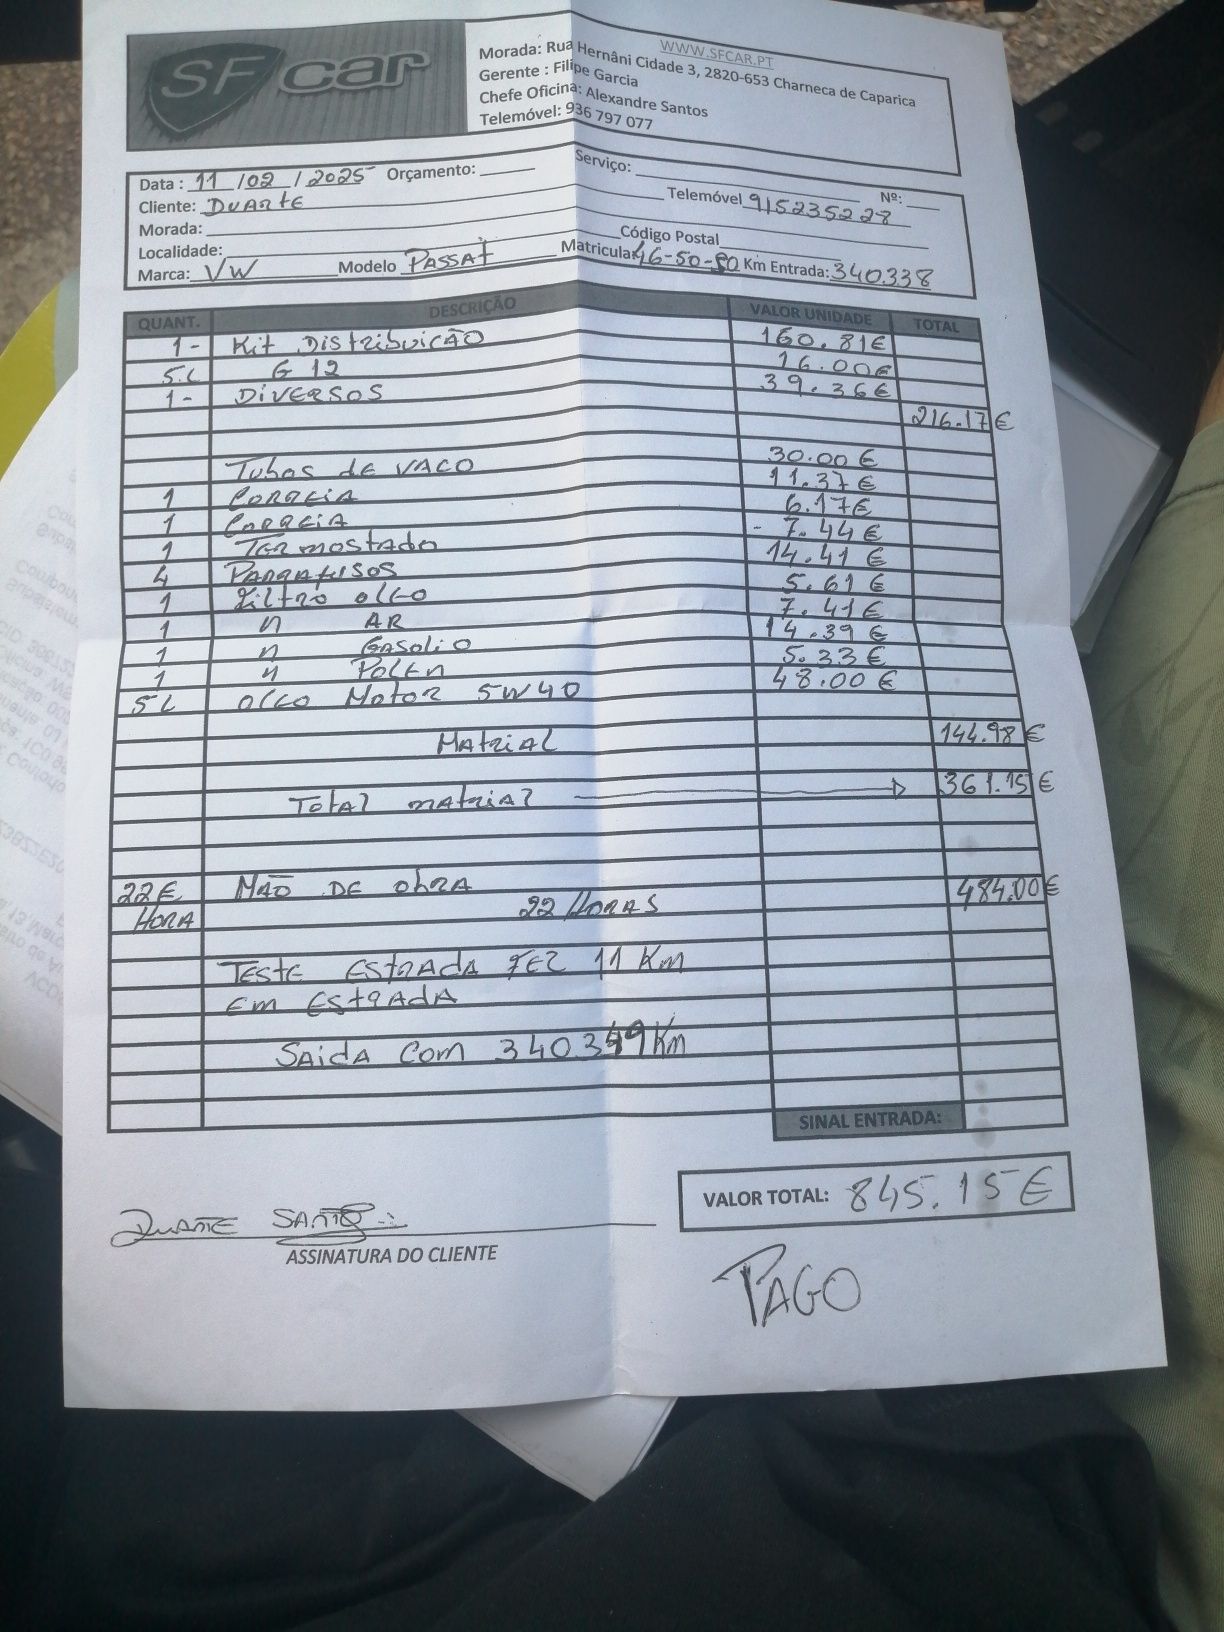 SF car
WWW.SFCAR.PT
Morada: Rua Hernâni Cidade 3, 2820-653 Charneca de Caparica
Gerente : Filipe Garcia
Chefe Oficina: Alexandre Santos
Telemóvel: 936 797 077
Data : 11 /02 /2025 Orçamento: Serviço: Nº:
Cliente: DUARTE Telemóvel 915235228
Morada:
Localidade: Código Postal
Marca: VW Modelo PASSAT Matricula: 46-50-80 Km Entrada: 340.338
QUANT. DESCRIÇÃO VALOR UNIDADE TOTAL
1- Kit DistRibuição 160.81€
5.L G 12 16.00€
1- DiVERSOS 39.36€
216.17€
Tubos de VACO 30.00€
1 CORREIA 11.37€
1 CORREIA 6.17€
1 TERMOSTADO - 7.44€
4 PARRAFUSOS 14.41€
1 Filtro olEO 5.61€
1 n AR 7.41€
1 n GASOLIO 14.39€
1 n POLEN 5.33€
5L OLEO MOTOR 5W40 48.00€
MATRIAL 144.98€
TOTAL MATRIAL 361.15€
22€ MÃO DE OhRA 484.00€
HORA 22 HORAS
TESTE ESTRADA FEZ 11 Km
EM ESTRADA
SAIDA COM 340.349Km
SINAL ENTRADA:
VALOR TOTAL: 845.15€
DUARTE SANTOS
ASSINATURA DO CLIENTE
PAGO